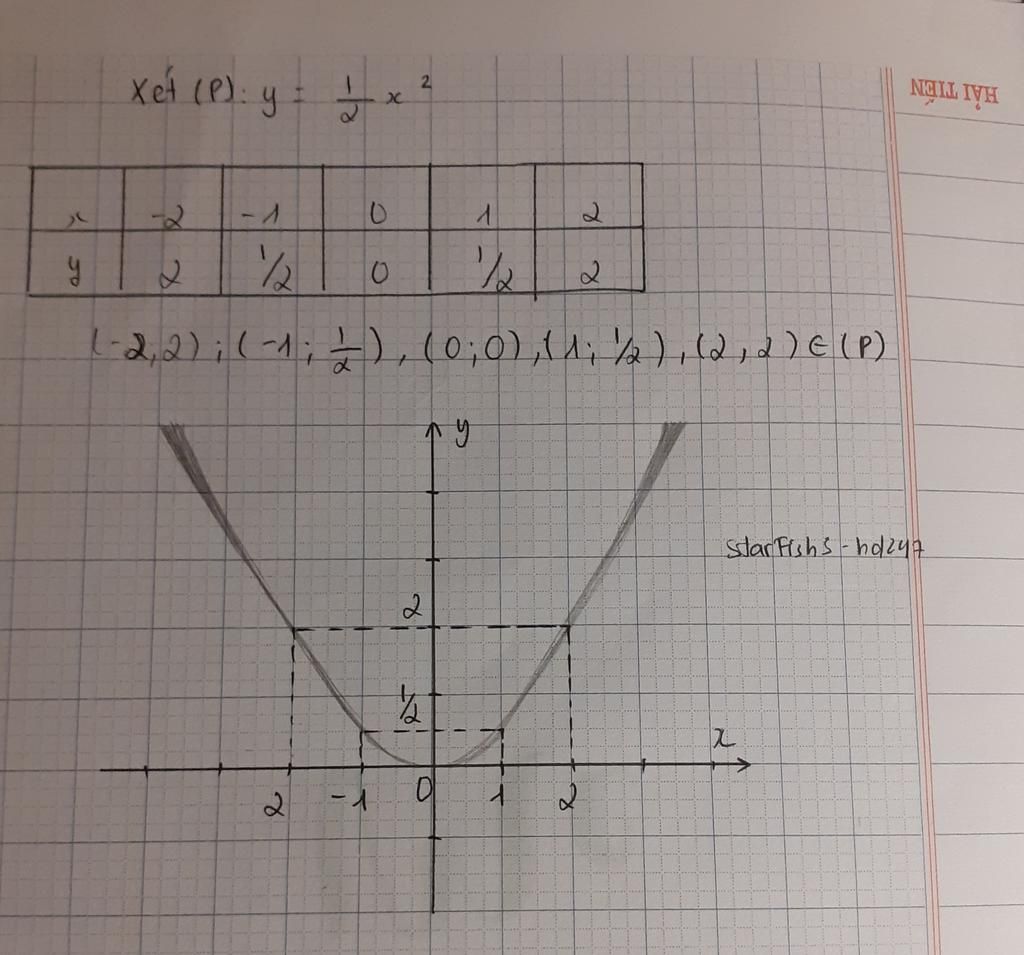 Xét (P): y = 1/2 x²
HẢI TIẾN
x -2 -1 0 1 2
y 2 1/2 0 1/2 2
(-2,2); (-1; 1/2), (0;0), (1; 1/2), (2,2) ∈ (P)
y
starFish3 - hd247
2
1/2
x
2 -1 0 1 2